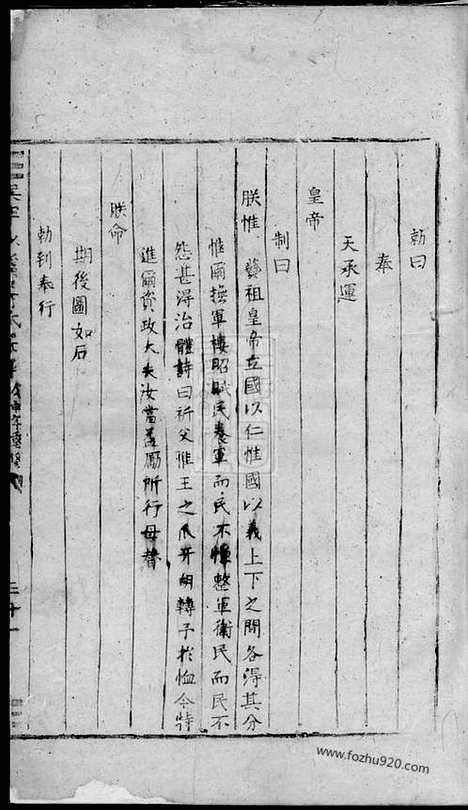 勅曰
奉
天承運
皇帝
制曰
朕惟 藝祖皇帝立國以仁惟國以義上下之間各得其分
惟爾撫軍樓昭賦民養軍而民不憚整軍衛民而民不
怨甚得治體詩曰祈父惟王之爪牙胡轉予於恤今特
進爾資政大夫汝當益勵所行毋替
朕命
期後圖如右
勅到奉行
二十一
www.fozhu920.com